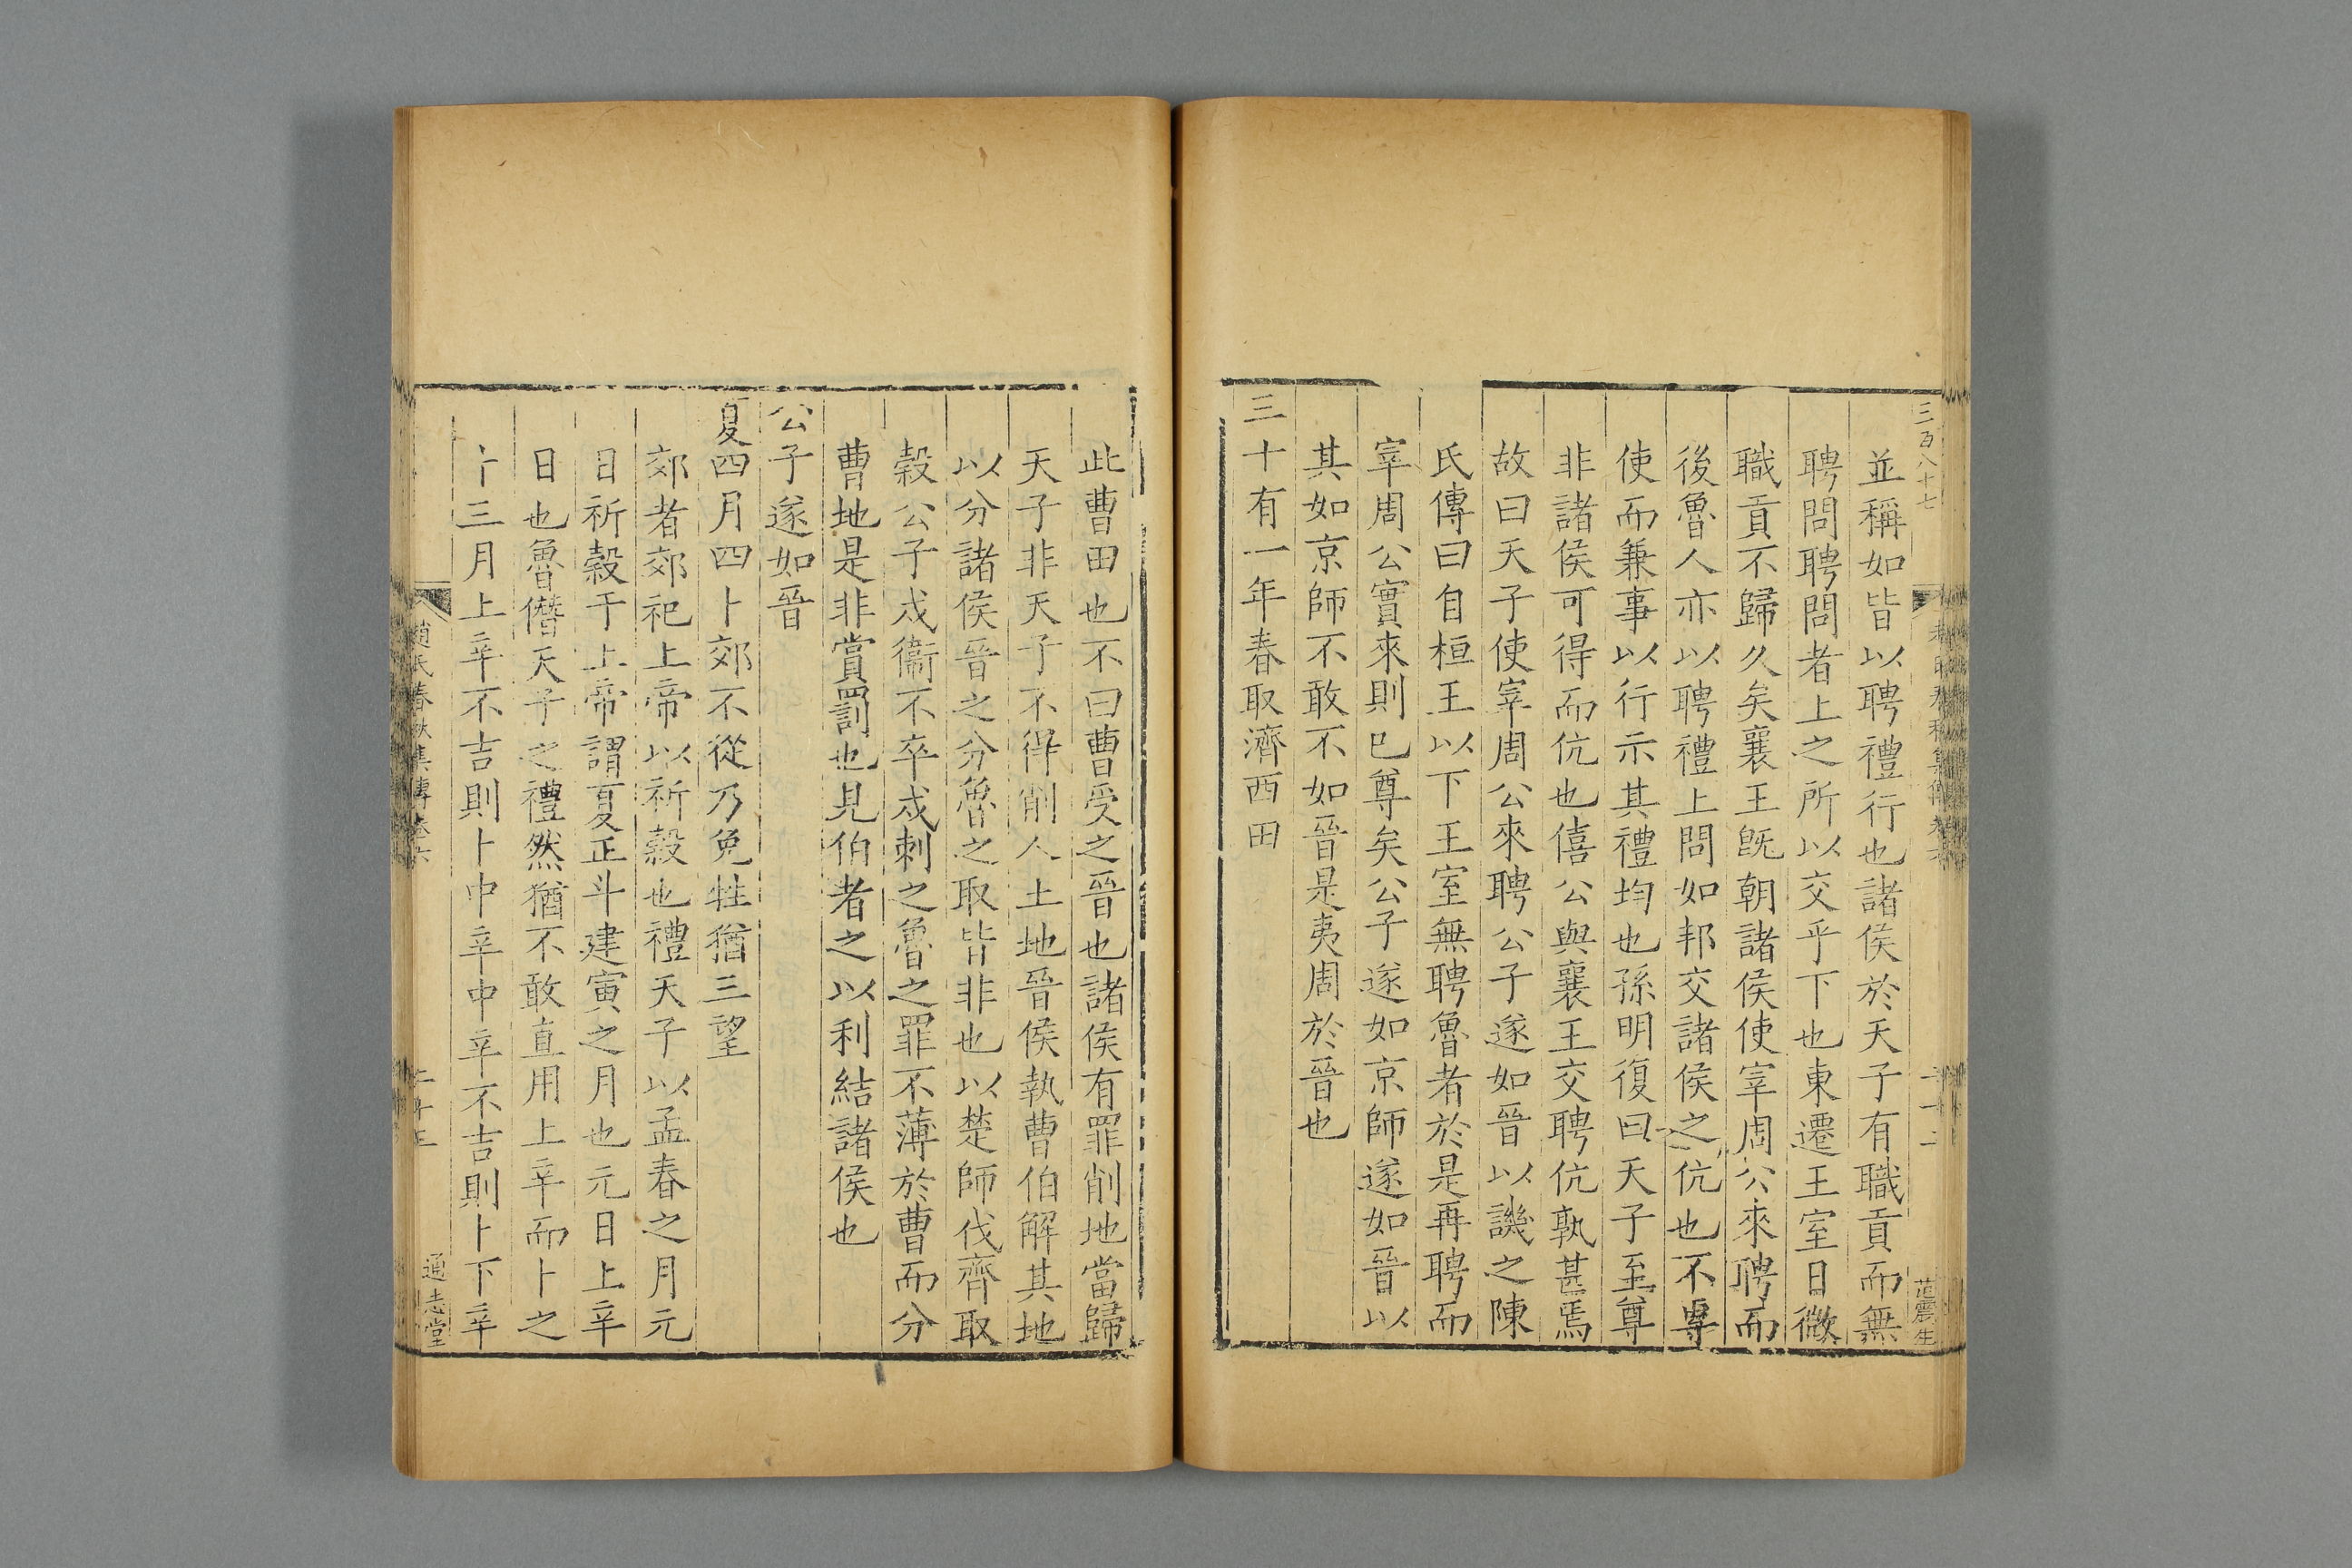 三百八十七
范震生
並稱如皆以聘禮行也諸侯於天子有職貢而無
聘問聘問者上之所以交乎下也東遷王室日微
職貢不歸久矣襄王旣朝諸侯使宰周公來聘而
後魯人亦以聘禮上問如邦交諸侯之伉也不專
使而兼事以行示其禮均也孫明復曰天子至尊
非諸侯可得而伉也僖公與襄王交聘伉孰甚焉
故曰天子使宰周公來聘公子遂如晉以譏之陳
氏傳曰自桓王以下王室無聘魯者於是再聘而
宰周公實來則已尊矣公子遂如京師遂如晉以
其如京師不敢不如晉是夷周於晉也
三十有一年春取濟西田
此曹田也不曰曹受之晉也諸侯有罪削地當歸
天子非天子不得削人土地晉侯執曹伯解其地
以分諸侯晉之分魯之取皆非也以楚師伐齊取
穀公子戍衞不卒戍刺之魯之罪不薄於曹而分
曹地是非賞罰也見伯者之以利結諸侯也
公子遂如晉
夏四月四卜郊不從乃免牲猶三望
郊者郊祀上帝以祈穀也禮天子以孟春之月元
日祈穀于上帝謂夏正斗建寅之月也元日上辛
日也魯僭天子之禮然猶不敢直用上辛而卜之
卜三月上辛不吉則卜中辛中辛不吉則卜下辛
趙氏春秋集傳卷六
通志堂